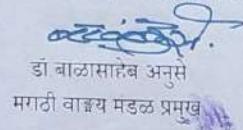 डॉ बाळासाहेब अनुसे
मराठी वाङ्मय मंडळ प्रमुख